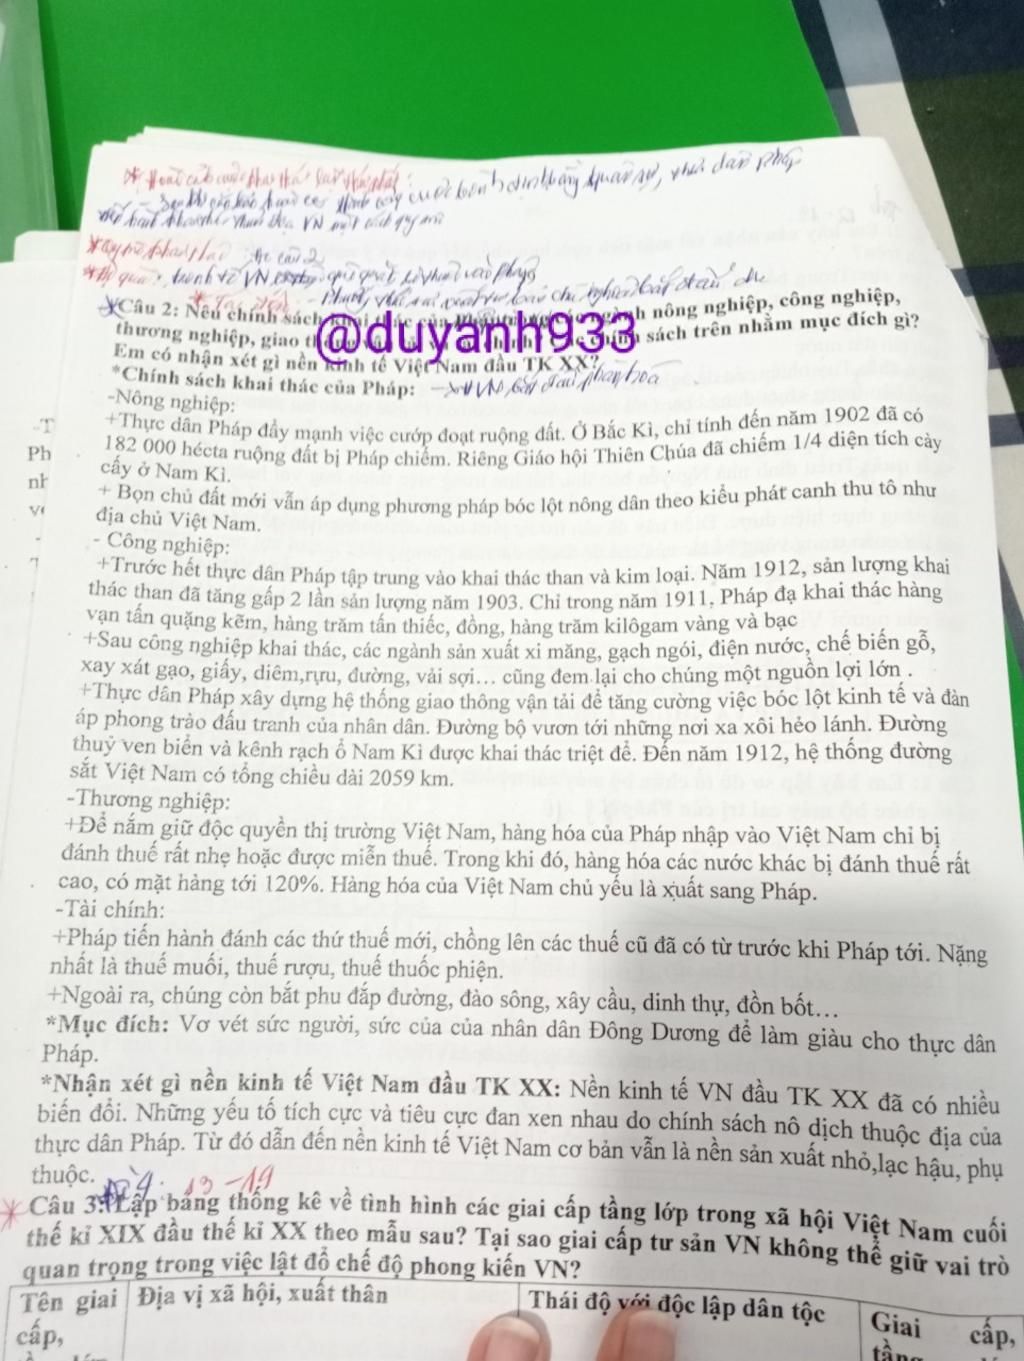 @duyanh933
Câu 2: Nêu chính sách khai thác của nông nghiệp, công nghiệp,
thương nghiệp, giao sách trên nhằm mục đích gì?
Em có nhận xét gì nền kinh tế Việt Nam đầu TK XX?
*Chính sách khai thác của Pháp:
-Nông nghiệp:
+Thực dân Pháp đẩy mạnh việc cướp đoạt ruộng đất. Ở Bắc Kì, chỉ tính đến năm 1902 đã có
182 000 hécta ruộng đất bị Pháp chiếm. Riêng Giáo hội Thiên Chúa đã chiếm 1/4 diện tích cày
cấy ở Nam Kì.
+ Bọn chủ đất mới vẫn áp dụng phương pháp bóc lột nông dân theo kiểu phát canh thu tô như
địa chủ Việt Nam.
- Công nghiệp:
+Trước hết thực dân Pháp tập trung vào khai thác than và kim loại. Năm 1912, sản lượng khai
thác than đã tăng gấp 2 lần sản lượng năm 1903. Chỉ trong năm 1911, Pháp đạ khai thác hàng
vạn tấn quặng kẽm, hàng trăm tấn thiếc, đồng, hàng trăm kilôgam vàng và bạc
+Sau công nghiệp khai thác, các ngành sản xuất xi măng, gạch ngói, điện nước, chế biến gỗ,
xay xát gạo, giấy, diêm,rựu, đường, vải sợi... cũng đem lại cho chúng một nguồn lợi lớn .
+Thực dân Pháp xây dựng hệ thống giao thông vận tải để tăng cường việc bóc lột kinh tế và đàn
áp phong trào đấu tranh của nhân dân. Đường bộ vươn tới những nơi xa xôi hẻo lánh. Đường
thuỷ ven biển và kênh rạch ố Nam Kì được khai thác triệt để. Đến năm 1912, hệ thống đường
sắt Việt Nam có tổng chiều dài 2059 km.
-Thương nghiệp:
+Để nắm giữ độc quyền thị trường Việt Nam, hàng hóa của Pháp nhập vào Việt Nam chỉ bị
đánh thuế rất nhẹ hoặc được miễn thuế. Trong khi đó, hàng hóa các nước khác bị đánh thuế rất
cao, có mặt hàng tới 120%. Hàng hóa của Việt Nam chủ yếu là xuất sang Pháp.
-Tài chính:
+Pháp tiến hành đánh các thứ thuế mới, chồng lên các thuế cũ đã có từ trước khi Pháp tới. Nặng
nhất là thuế muối, thuế rượu, thuế thuốc phiện.
+Ngoài ra, chúng còn bắt phu đắp đường, đào sông, xây cầu, dinh thự, đồn bốt...
*Mục đích: Vơ vét sức người, sức của của nhân dân Đông Dương để làm giàu cho thực dân
Pháp.
*Nhận xét gì nền kinh tế Việt Nam đầu TK XX: Nền kinh tế VN đầu TK XX đã có nhiều
biến đổi. Những yếu tố tích cực và tiêu cực đan xen nhau do chính sách nô dịch thuộc địa của
thực dân Pháp. Từ đó dẫn đến nền kinh tế Việt Nam cơ bản vẫn là nền sản xuất nhỏ,lạc hậu, phụ
thuộc.
13 - 19
Câu 3: Lập bảng thống kê về tình hình các giai cấp tầng lớp trong xã hội Việt Nam cuối
thế kỉ XIX đầu thế kỉ XX theo mẫu sau? Tại sao giai cấp tư sản VN không thể giữ vai trò
quan trọng trong việc lật đổ chế độ phong kiến VN?
Tên giai Địa vị xã hội, xuất thân Thái độ với độc lập dân tộc Giai cấp,
cấp, tầng